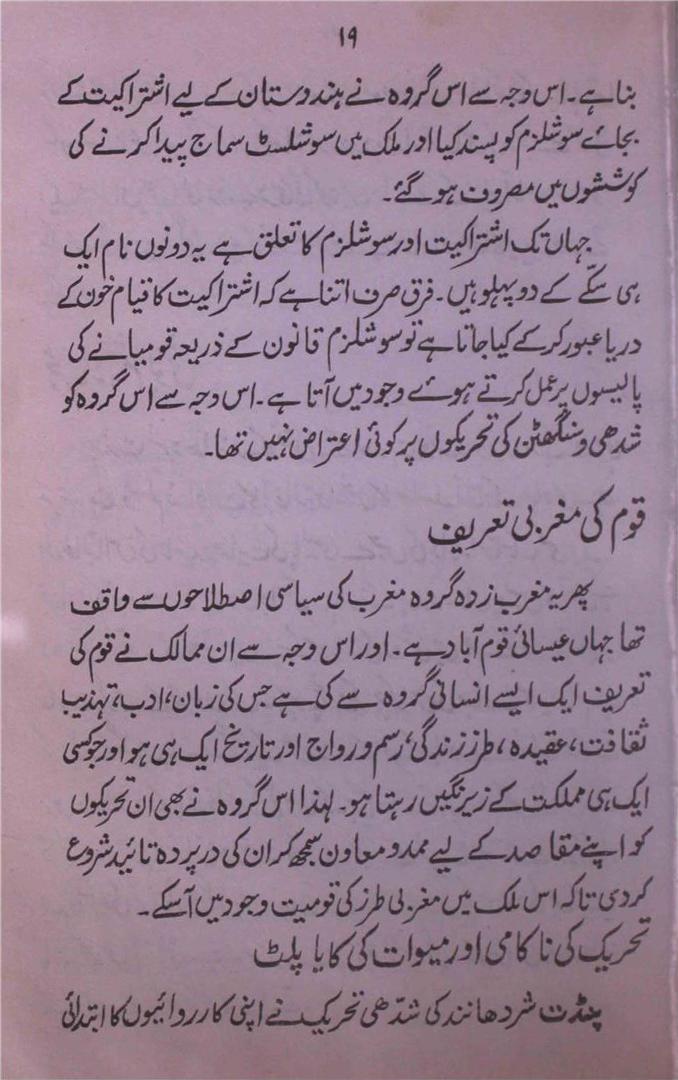 ۱۹
بنا ہے۔ اس وجہ سے اس گروہ نے ہندوستان کے لیے اشتراکیت کے
بجائے سوشلزم کو پسند کیا اور ملک میں سوشلسٹ سماج پیدا کرنے کی
کوششوں میں مصروف ہو گئے۔
جہاں تک اشتراکیت اور سوشلزم کا تعلق ہے یہ دونوں نام ایک
ہی سکّے کے دو پہلو ہیں۔ فرق صرف اتنا ہے کہ اشتراکیت کا قیام خون کے
دریا عبور کر کے کیا جاتا ہے تو سوشلزم قانون کے ذریعہ قومیانے کی
پالیسوں پر عمل کرتے ہوئے وجود میں آتا ہے۔ اس وجہ سے اس گروہ کو
شدھی و سنگھٹن کی تحریکوں پر کوئی اعتراض نہیں تھا۔
قوم کی مغربی تعریف
پھر یہ مغرب زدہ گروہ مغرب کی سیاسی اصطلاحوں سے واقف
تھا جہاں عیسائی قوم آباد ہے۔ اور اس وجہ سے ان ممالک نے قوم کی
تعریف ایک ایسے انسانی گروہ سے کی ہے جس کی زبان، ادب، تہذیب
ثقافت، عقیدہ، طرز زندگی، رسم و رواج اور تاریخ ایک ہی ہو اور جو کسی
ایک ہی مملکت کے زیر نگیں رہتا ہو۔ لہذا اس گروہ نے بھی ان تحریکوں
کو اپنے مقاصد کے لیے ممد و معاون سمجھ کر ان کی درپردہ تائید شروع
کردی تاکہ اس ملک میں مغربی طرز کی قومیت وجود میں آسکے۔
تحریک کی ناکامی اور میوات کی کایا پلٹ
پنڈت شردھانند کی شدّھی تحریک نے اپنی کارروائیوں کا ابتدائی